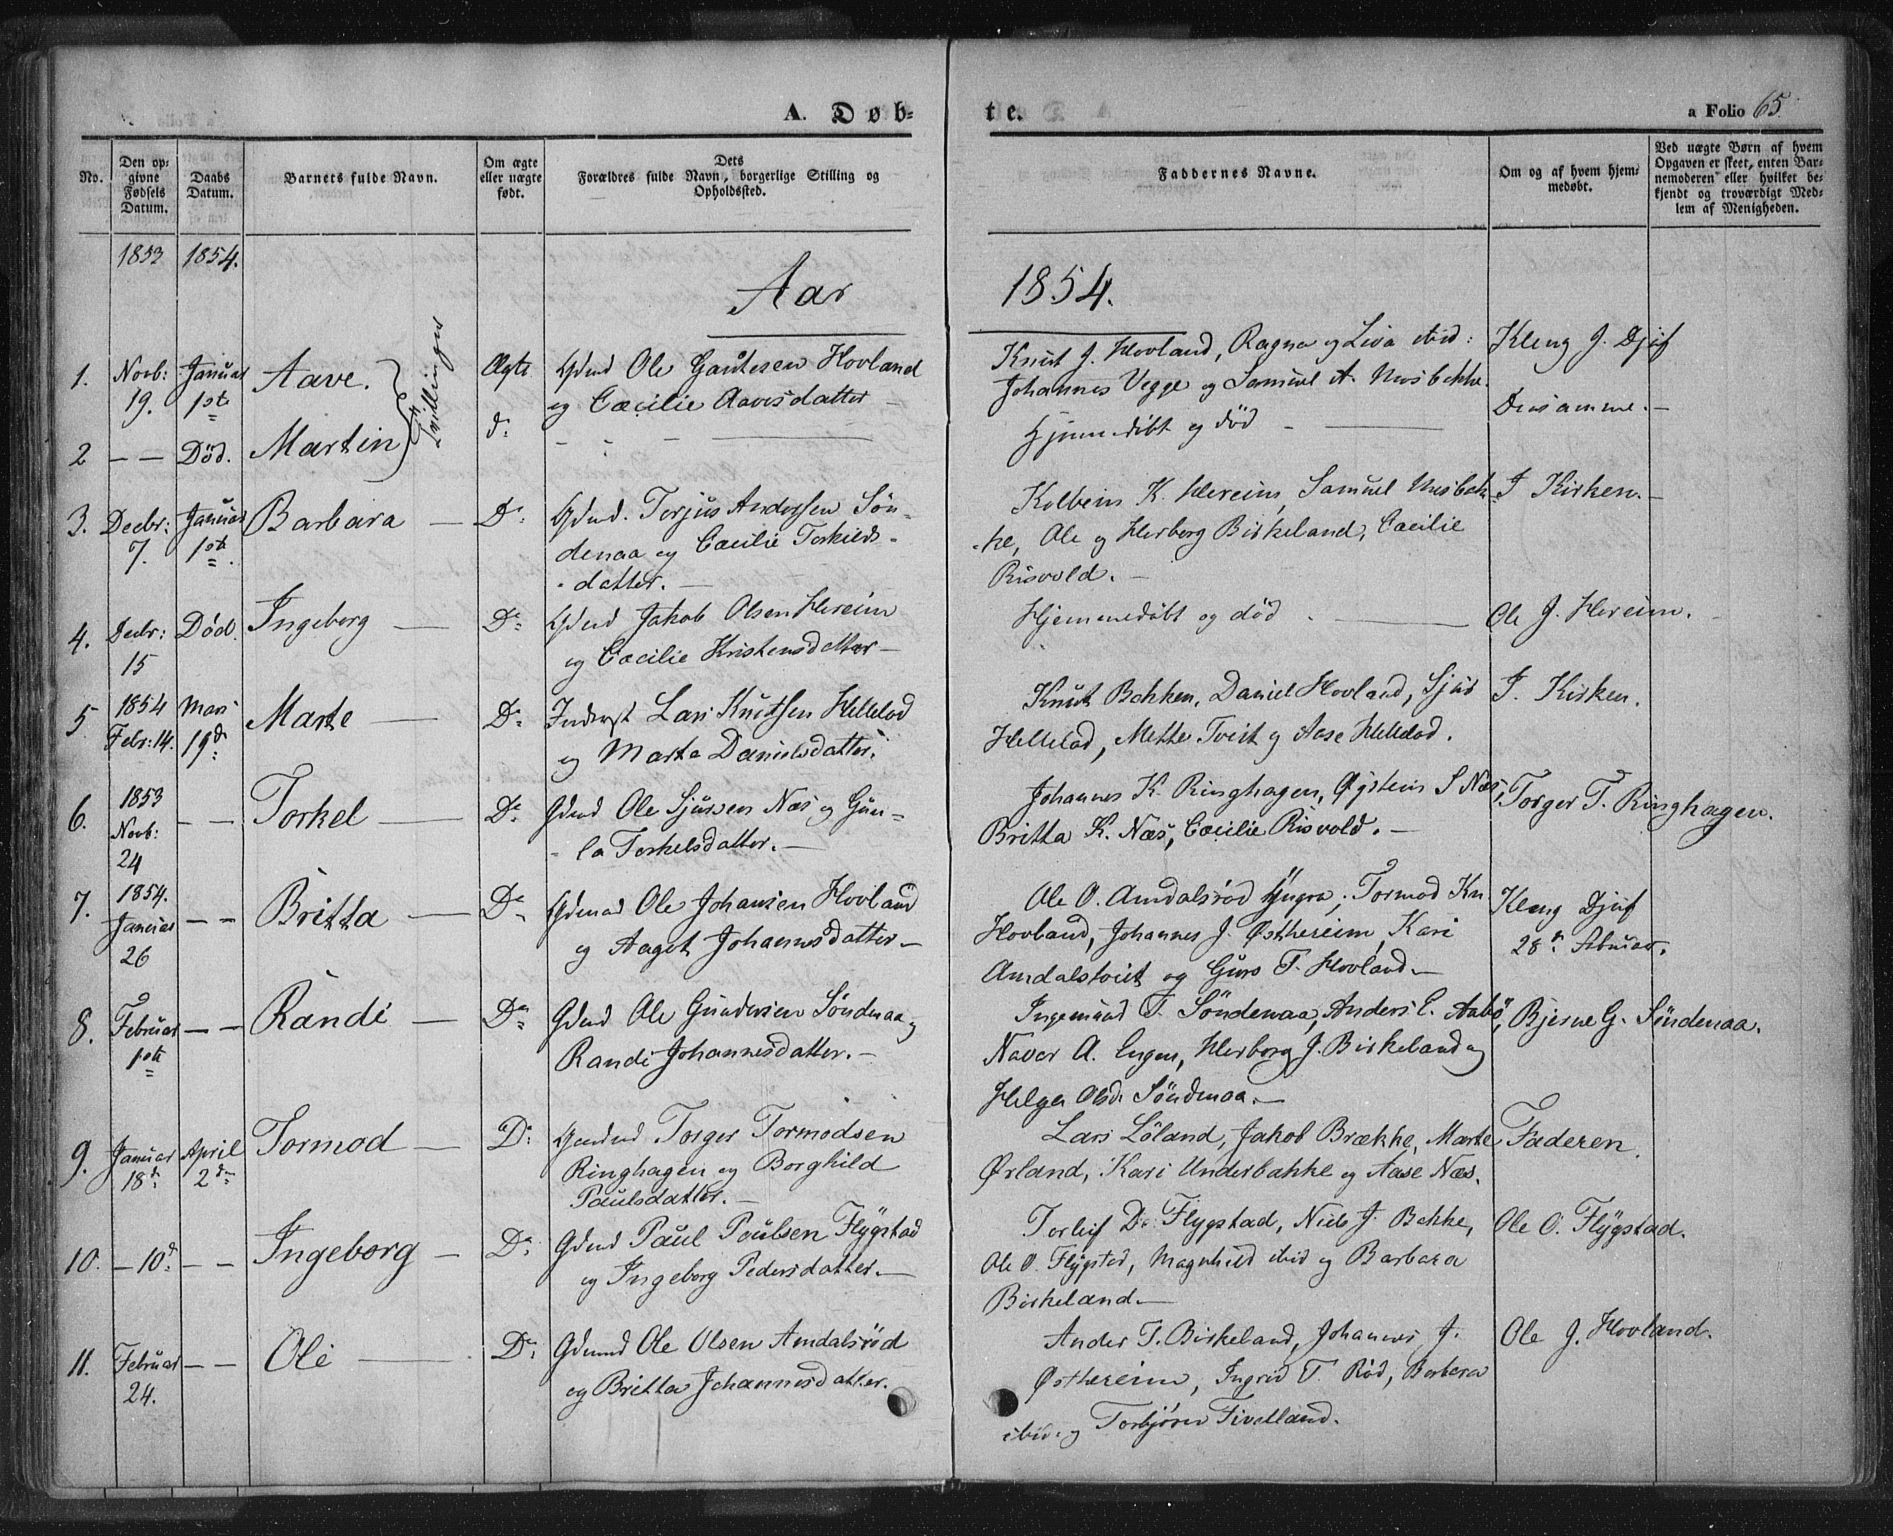 A. Døb-
te.
a Folio 65.
No.
Den op-
givne
Fødsels
Datum.
Daabs
Datum.
Barnets fulde Navn.
Om ægte
eller uægte
født.
Dets
Forældres fulde Navn, borgerlige Stilling og
Opholdssted.
Faddernes Navne.
Om og af hvem hjem-
medøbt.
Ved uægte Børn af hvem
Opgaven er skeet, enten Bar-
nemoderen eller hvilket be-
kjendt og troværdigt Med-
lem af Menigheden.
1853
1854.
Aar
1854.
1.
Novb:
19.
Januar
1ste
Aave.
Tvillinger
Ægte
Gdmd Ole Gautesen Hovland
og Cæcilie Aavesdatter
Knut J. Hovland, Ragna og Liva ibid:
Johannes Vegge og Samuel A. Musbekke.
Kleng J. Djuf
2
— —
Død.
Martin
d:
- - -
Hjemmedöbt og död
Densamme.—
3.
Decbr:
7.
Januar
1ste
Barbara —
Do
Gdmd. Torjus Andersen Sön-
denaa og Cæcilie Torkilds-
-datter.—
Kolbein K. Hereim, Samuel Musbek-
-ke, Ole og Herborg Birkeland, Cæcilie
Risvold.—
I Kirken.—
4.
Decbr:
15
Død.
Ingeborg —
Do
Gdmd Jakob Olsen Hereim
og Cæcilie Kristensdatter—
Hjemmedöbt og död
Ole J. Hereim.
5
1854
Febr: 14.
Mars
19de
Marte —
Do
Inderst Lars Knutsen Hellelod
og Marta Danielsdatter.
Knut Bakken, Daniel Hovland, Sjur
Hellelod, Mette Tveit og Aase Hellelod.
I Kirken.
6.
1853
Novb:
24
— —
Torkel —
Do
Gdmd Ole Sjursen Næs og Gun-
-la Torkelsdatter.—
Johannes K. Ringhagen, Øystein S Næs,
Britta K. Næs, Cæcilie Risvold.—
Torger T. Ringhagen.
7.
1854.
Januar
26
— —
Britta —
Do
Gdmd Ole Johansen Hovland
og Aaget Johannesdatter—
Ole O. Amdalsröd Yngre, Tormod Kn
Hovland, Johannes J. Østhereim, Kari
Amdalstveit og Guro T. Hovland.—
Kleng Djuf
28de Februar.
8.
Februar
1ste
— —
Randi —
Do
Gdmd Ole Gundersen Söndenaa og
Randi Johannesdatter.—
Ingemund T. Söndenaa, Anders E. Aabö,
Naver A. Engen, Herborg J. Birkeland og
Helga Olsdr Söndenaa.—
Bjerne G. Söndenaa.
9.
Januar
18de
April
2den
Tormod —
Do
Gdmd Torger Tormodsen
Ringhagen og Borghild
Paulsdatter.—
Lars Löland, Jakob Brække, Marte
Ørland, Kari Underbakke og Aase Næs.
Faderen.
10.
— 10de
— —
Ingeborg —
Do
Gdmd Paul Poulsen Flÿgstad
og Ingeborg Pedersdatter.—
Torleif D. Flygstad, Niels J. Bakke,
Ole O. Flÿgstad, Magnhild ibid og Barbara
Birkeland.—
Ole O. Flÿgstad.
11.
Februar
24.
— —
Ole —
Do
Gdmd Ole Olsen Amdalsröd
og Britta Johannesdatter.
Anders T. Birkeland, Johannes J.
Østhereim, Ingrid T. Röd, Barbara
ibid. og Torbjörn Fivelland.
Ole J. Hovland.